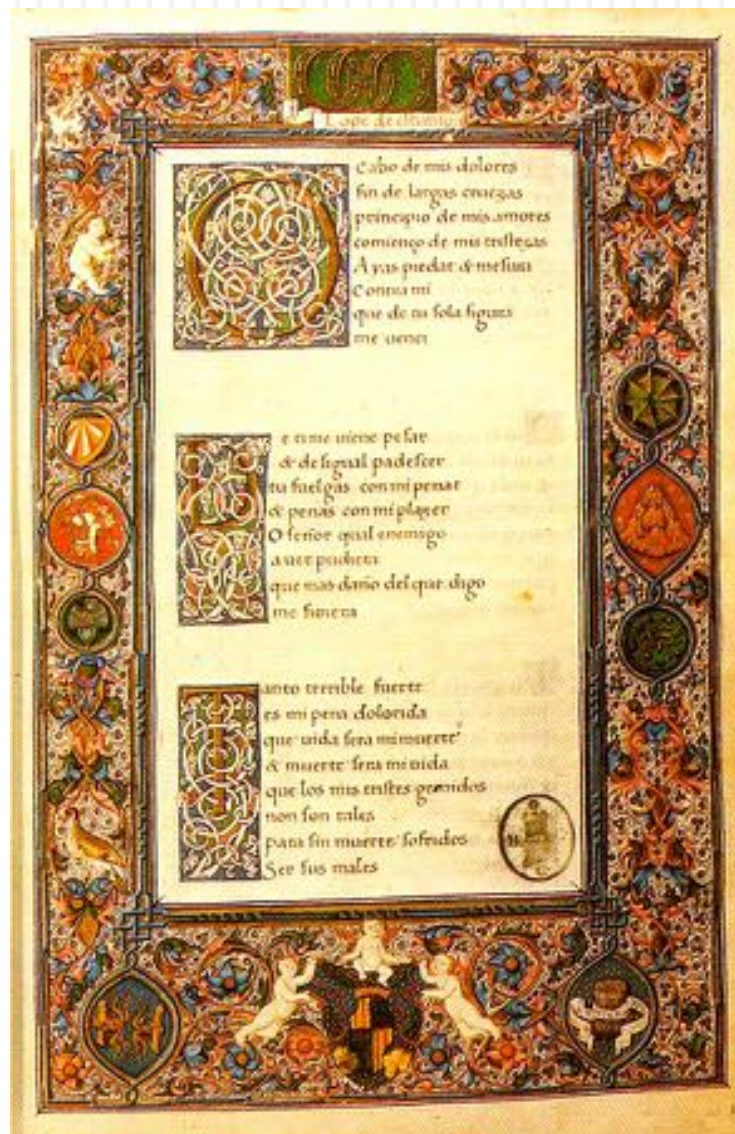 Lope de estuniga
O Cabo de mis dolores
fin de largas cruezas
principio de mis amores
comienço de mis tristezas
Ayas piedat & mesura
Contra mi
que de tu sola figura
me venci
De ti me viene pesar
& desigual padescer
tu fuelgas con mi penar
& penas con mi plazer
O señor qual enemigo
que mas daño del que digo
me fiziera
Tanto terrible fuerte
es mi pena dolorida
que vida sera mi muerte
& muerte sera mi vida
que los mis tristes gemidos
non son tales
para sin muerte sofridos
Ser sus males